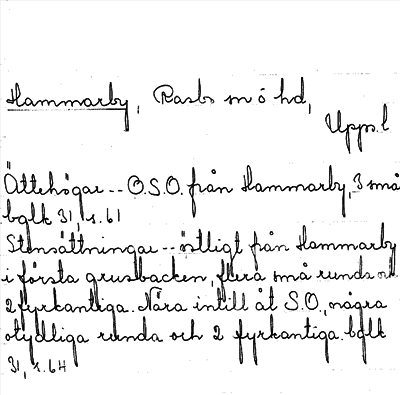 Hammarby, Rasbo sn o hd,
Upps.l
Ättehögar -- O.S.O. från Hammarby, 3 små
bglk 31, s. 61
Stensättningar -- östligt från Hammarby
i första grusbacken, flera små runda och
2 fyrkantiga. Nära intill åt S.O., några
otydliga runda och 2 fyrkantiga. bglk
31, s. 64